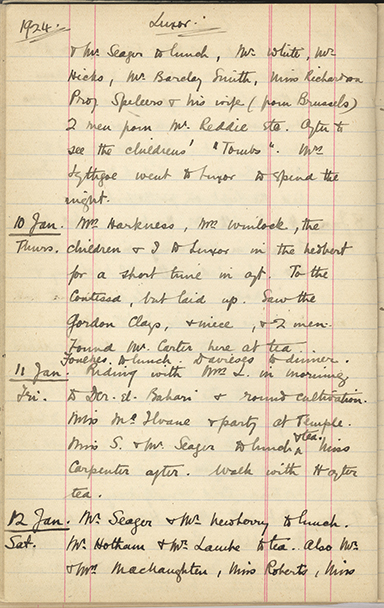 1924. Luxor.
& Mr Seager to lunch, Mr White, Mr
Hicks, Mr Barclay Smith, Miss Richardson
Prof Speleers & his wife (from Brussels)
2 men from Mr Reddie etc. After to
see the childrens' "Tombs". Mrs
Lythgoe went to Luxor to spend the
night.
10 Jan. Mrs Harkness, Mrs Winlock, the
Thurs. children & I to Luxor in the
for a short time in aft. To the
Contessa, but laid up. Saw the
Gordon Clays, & niece, & 2 men.
Found Mr Carter here at tea
to lunch. Davieses to dinner.
11 Jan. Riding with Mrs L. in morning
Fri. to Der-el-Bahari & round cultivation.
Miss McIlvane & party at Temple.
& tea.
Miss S. & Mr Seager to lunch Miss
Carpenter after. Walk with H after
tea.
12 Jan. Mr Seager & Mr Newberry to lunch.
Sat. Mr Hotham & Mr Lambe to tea. Also Mr
& Mrs MacNaughten, Miss Roberts, Miss